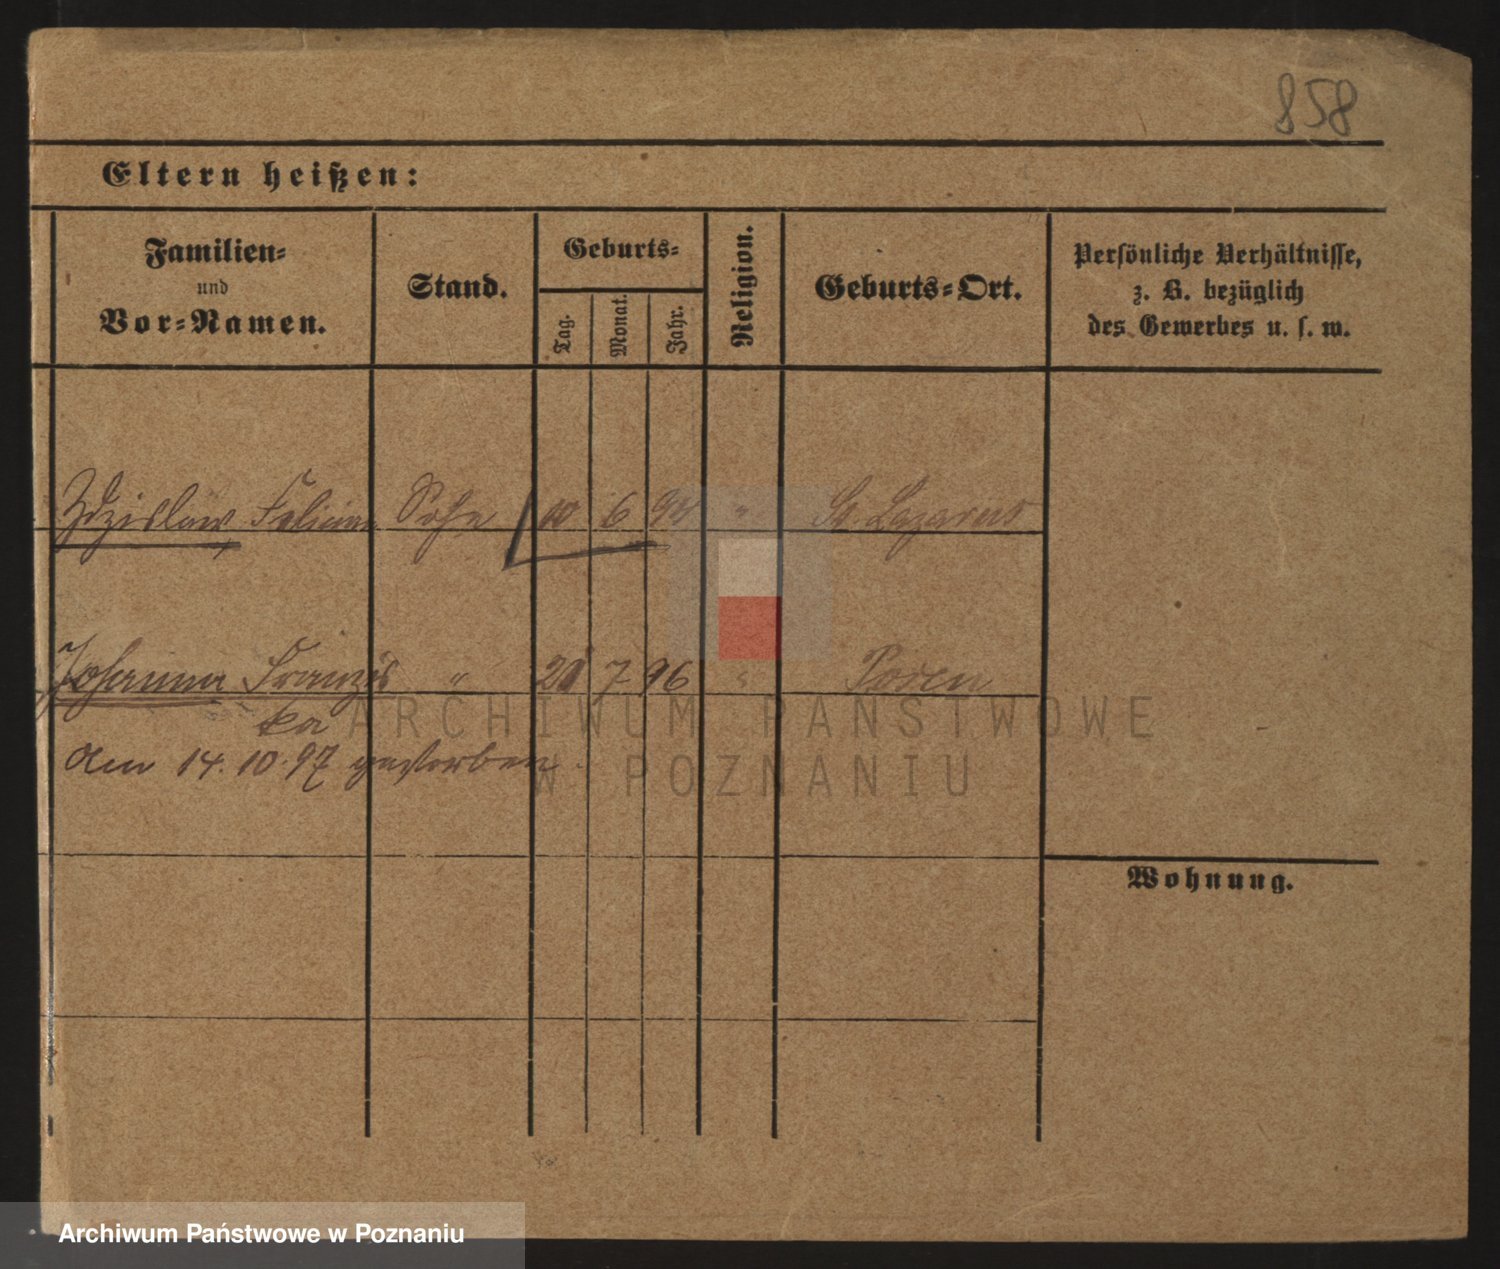 858
Eltern heißen:
Familien=
und
Vor=Namen.
Stand.
Geburts=
Tag.
Monat.
Jahr.
Religion.
Geburts=Ort.
Persönliche Verhältnisse,
z. B. bezüglich
des Gewerbes u. s. w.
Zdzislaw Felician Sohn 10 6 94 " St. Lazarus
Johanna Franzis " 21 7 96 " Posen
ka
Am 14.10.97 gestorben.
Wohnung.
ARCHIWUM PAŃSTWOWE
W POZNANIU
Archiwum Państwowe w Poznaniu